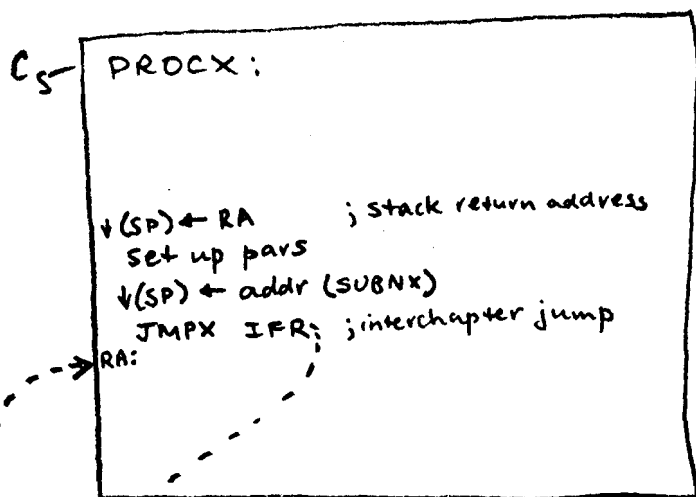 C5
PROCX:
↓(SP) ← RA ; stack return address
set up pars
↓(SP) ← addr (SUBNX)
JMPX IFR; ; interchapter jump
RA: